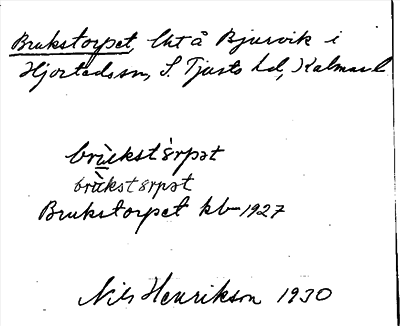 Brukstorpet, lht å Bjurvik i
Hjorteds sn, S. Tjusts hd, Kalmar l
brùkst8̀rpət
brùkst8rpət
Brukstorpet kb 1927
Nils Henrikson 1930